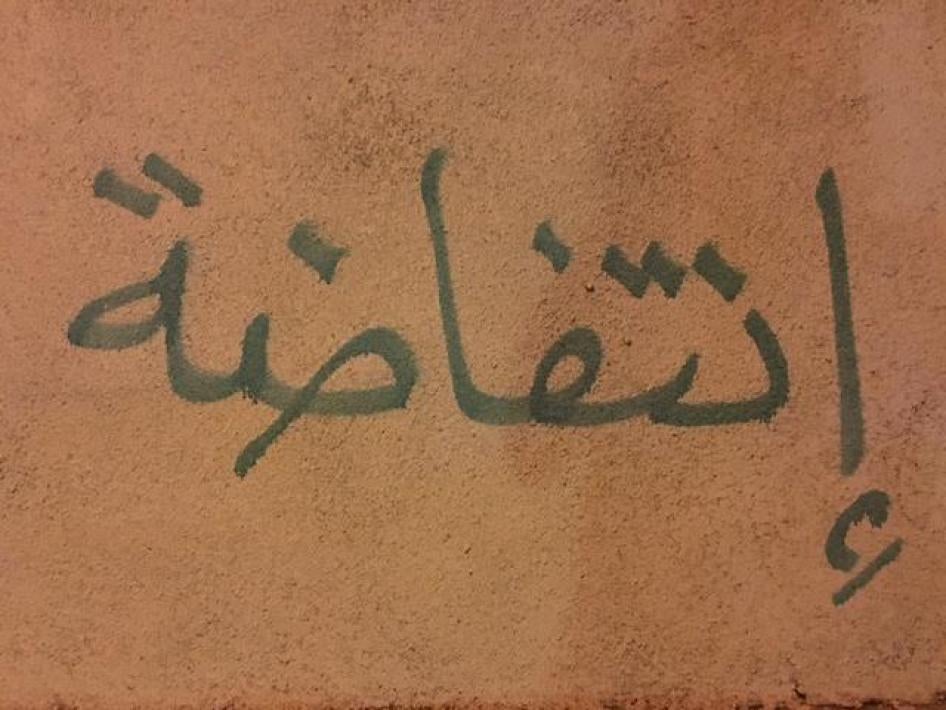 إنتفاضة